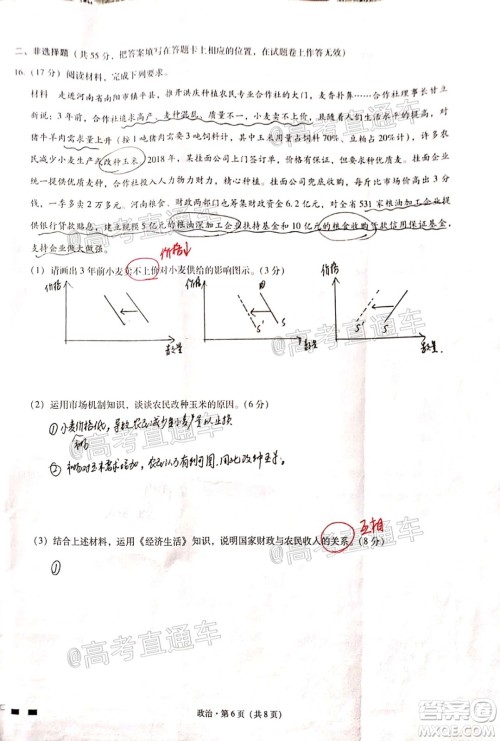 二、非选择题（共 55 分，把答案填写在答题卡上相应的位置，在试题卷上作答无效）
16.（17 分）阅读材料，完成下列要求。
材料　走进河南省南阳市镇平县，推开洪庆种植农民专业合作社的大门，麦香扑鼻……合作社理事长甘立
新说：3 年前，合作社追求高产，麦种混种，质量不高，小麦卖不上价。其时随着人们生活水平的提高，对
猪牛羊肉需求量上升（按 1 吨猪肉需要 3 吨饲料计算，其中玉米占饲料 70%、豆粕占 20%计算），许多农
民减少小麦生产改种玉米。2018 年，某挂面公司与合作社签订订单，价格有保证，但质量要求高。挂面企业
严格要求操作流程，量虽小但不能混种，合作社投入人力物力财力。挂面质量提高，每千克挂面价格提高，
企业一季多卖 2 万多元。河南粮食、财政两部门也筹集财政资金 6.2 亿元，对全省 531 家粮油加工企业提
供银行贷款贴息。建立规模 5 亿元的粮油深加工企业扶持基金和 10 亿元的粮食收购贷款信用保证基金，
支持企业做大做强。
价格↓
（1）请画出 3 年前小麦卖不上价对小麦供给的影响图示。（3 分）
价格
数量
价格
S'
S
数量
价格
S'
S
数量
（2）运用市场机制知识，谈谈农民改种玉米的原因。（6 分）
①小麦价格低，导致农民减少小麦产量以止损
市场
②市场对玉米需求增加，农民认为有利可图，因此改种玉米。
互相
（3）结合上述材料，运用《经济生活》知识，说明国家财政与农民收入的关系。（8 分）
①
政治·第 6 页（共 8 页）
@高考直通车
@高考直通车
@高考直通车
@高考直通车
答案圈
MXQE.COM